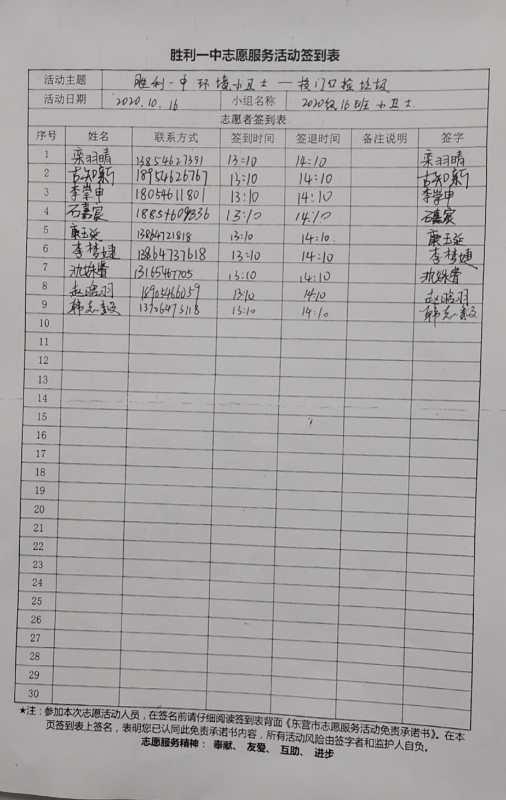 胜利一中志愿服务活动签到表
活动主题 胜利一中环境小卫士—校门口捡垃圾
活动日期 2020.10.16 小组名称 2020级16班小卫士
志愿者签到表
序号 姓名 联系方式 签到时间 签退时间 备注说明 签字
1 栾羽晴 13854627391 13:10 14:10 栾羽晴
2 18954626767 13:10 14:10
3 李学申 18054611801 13:10 14:10 李学申
4 石嘉宸 18854609336 13:10 14:10 石嘉宸
5 13864721818 13:10 14:10
6 李梦婕 13864737618 13:10 14:10 李梦婕
7 13165467705 13:10 14:10
8 赵晗羽 18904466059 13:10 14:10 赵晗羽
9 韩志毅 13906473118 13:10 14:10 韩志毅
10
11
12
13
14
15
16
17
18
19
20
21
22
23
24
25
26
27
28
29
30
★注：参加本次志愿活动人员，在签名前请仔细阅读签到表背面《东营市志愿服务活动免责承诺书》。在本
页签到表上签名，表明您已认同此免责承诺书内容，所有活动风险由签字者和监护人自负。
志愿服务精神： 奉献、 友爱、 互助、 进步